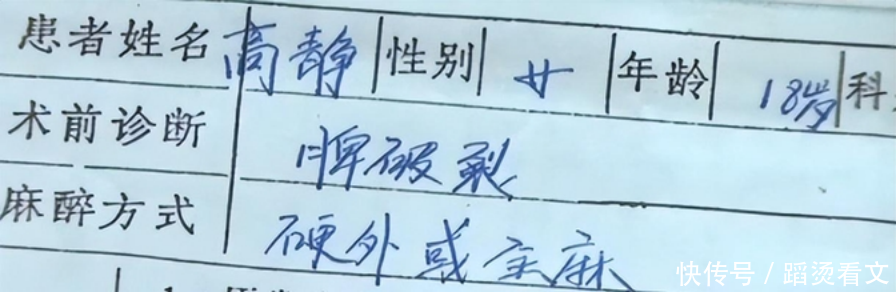 患者姓名 高静 性别 女 年龄 18岁 科
术前诊断 脾破裂
麻醉方式 硬外或全麻
快传号 / 蹈烫看文